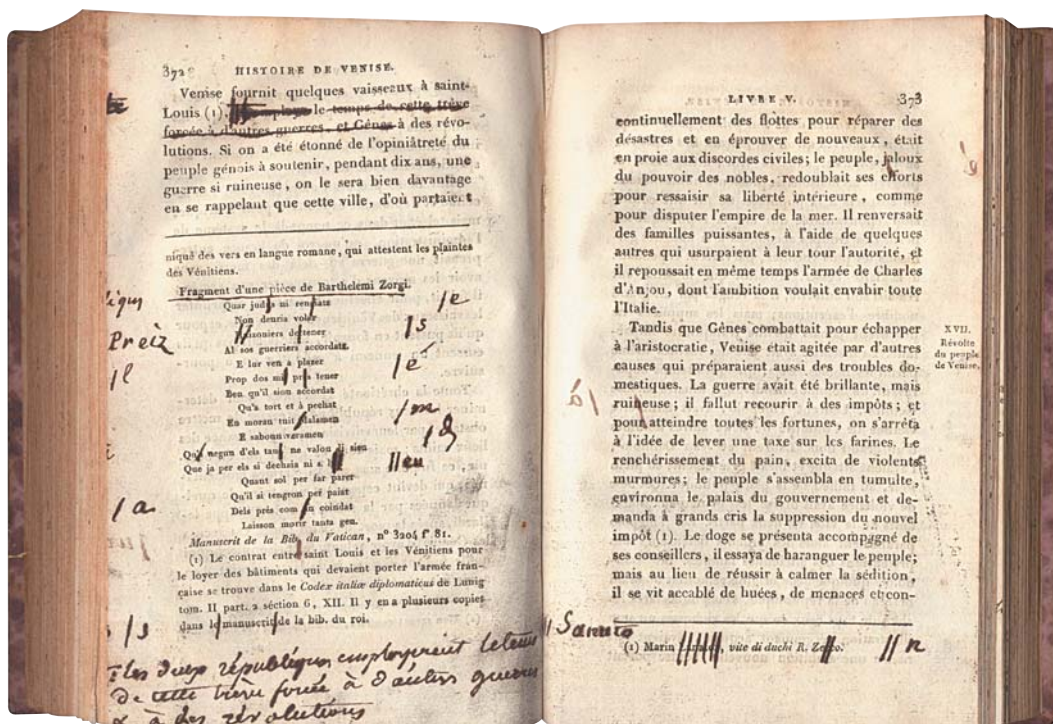 372 HISTOIRE DE VENISE.
Venise fournit quelques vaisseaux à saint-
Louis (1), employa le temps de cette trève
forcée à d'autres guerres, et Gênes à des révo-
lutions. Si on a été étonné de l'opiniâtreté du
peuple génois à soutenir, pendant dix ans, une
guerre si ruineuse, on le sera bien davantage
en se rappelant que cette ville, d'où partaient
niqué des vers en langue romane, qui attestent les plaintes
des Vénitiens.
Fragment d'une pièce de Barthelemi Zorgi.
Quar judas ni renhats
Non deuria voler
Prisoniers detener
Al sos guerriers accordats
E lur ven a plazer
Prop dos mil pres tener
Ben qu'il sion accordat
Qu'a tort et à pechat
En moran tuit malamen
E sabon veramen
negun d'els tan ne valon li sieu
Que ja per els si dechaia ni s.
Quant sol per far parer
Qu'il si tengron per paist
Dels près com an coindat
Laisson morir tanta gen.
Manuscrit de la Bib. du Vatican, n° 3204 f° 81.
(1) Le contrat entre saint Louis et les Vénitiens pour
le loyer des bâtiments qui devaient porter l'armée fran-
çaise se trouve dans le Codex italiæ diplomaticus de Lunig
tom. II part. 2 section 6, XII. Il y en a plusieurs copies
dans le manuscrit de la bib. du roi.
Preiz
e
s
é
l
m
eu
a
s
les deux républiques employèrent le tems
de cette trève forcée à d'autres guerres
& à des révolutions
LIVRE V. 373
continuellement des flottes pour réparer des
désastres et en éprouver de nouveaux, était
en proie aux discordes civiles; le peuple, jaloux
du pouvoir des nobles, redoublait ses efforts
pour ressaisir sa liberté intérieure, comme
pour disputer l'empire de la mer. Il renversait
des familles puissantes, à l'aide de quelques
autres qui usurpaient à leur tour l'autorité, et
il repoussait en même temps l'armée de Charles
d'Anjou, dont l'ambition voulait envahir toute
l'Italie.
Tandis que Gênes combattait pour échapper
à l'aristocratie, Venise était agitée par d'autres
causes qui préparaient aussi des troubles do-
mestiques. La guerre avait été brillante, mais
ruineuse; il fallut recourir à des impôts; et
pour atteindre toutes les fortunes, on s'arrêta
à l'idée de lever une taxe sur les farines. Le
renchérissement du pain, excita de violents
murmures; le peuple s'assembla en tumulte,
environna le palais du gouvernement et de-
manda à grands cris la suppression du nouvel
impôt (1). Le doge se présenta accompagné de
ses conseillers, il essaya de haranguer le peuple;
mais au lieu de réussir à calmer la sédition,
il se vit accablé de huées, de menaces et con-
XVII.
Révolte
du peuple
de Venise.
à
Sanuto
(1) Marin vite di duchi R. Zeno.
n